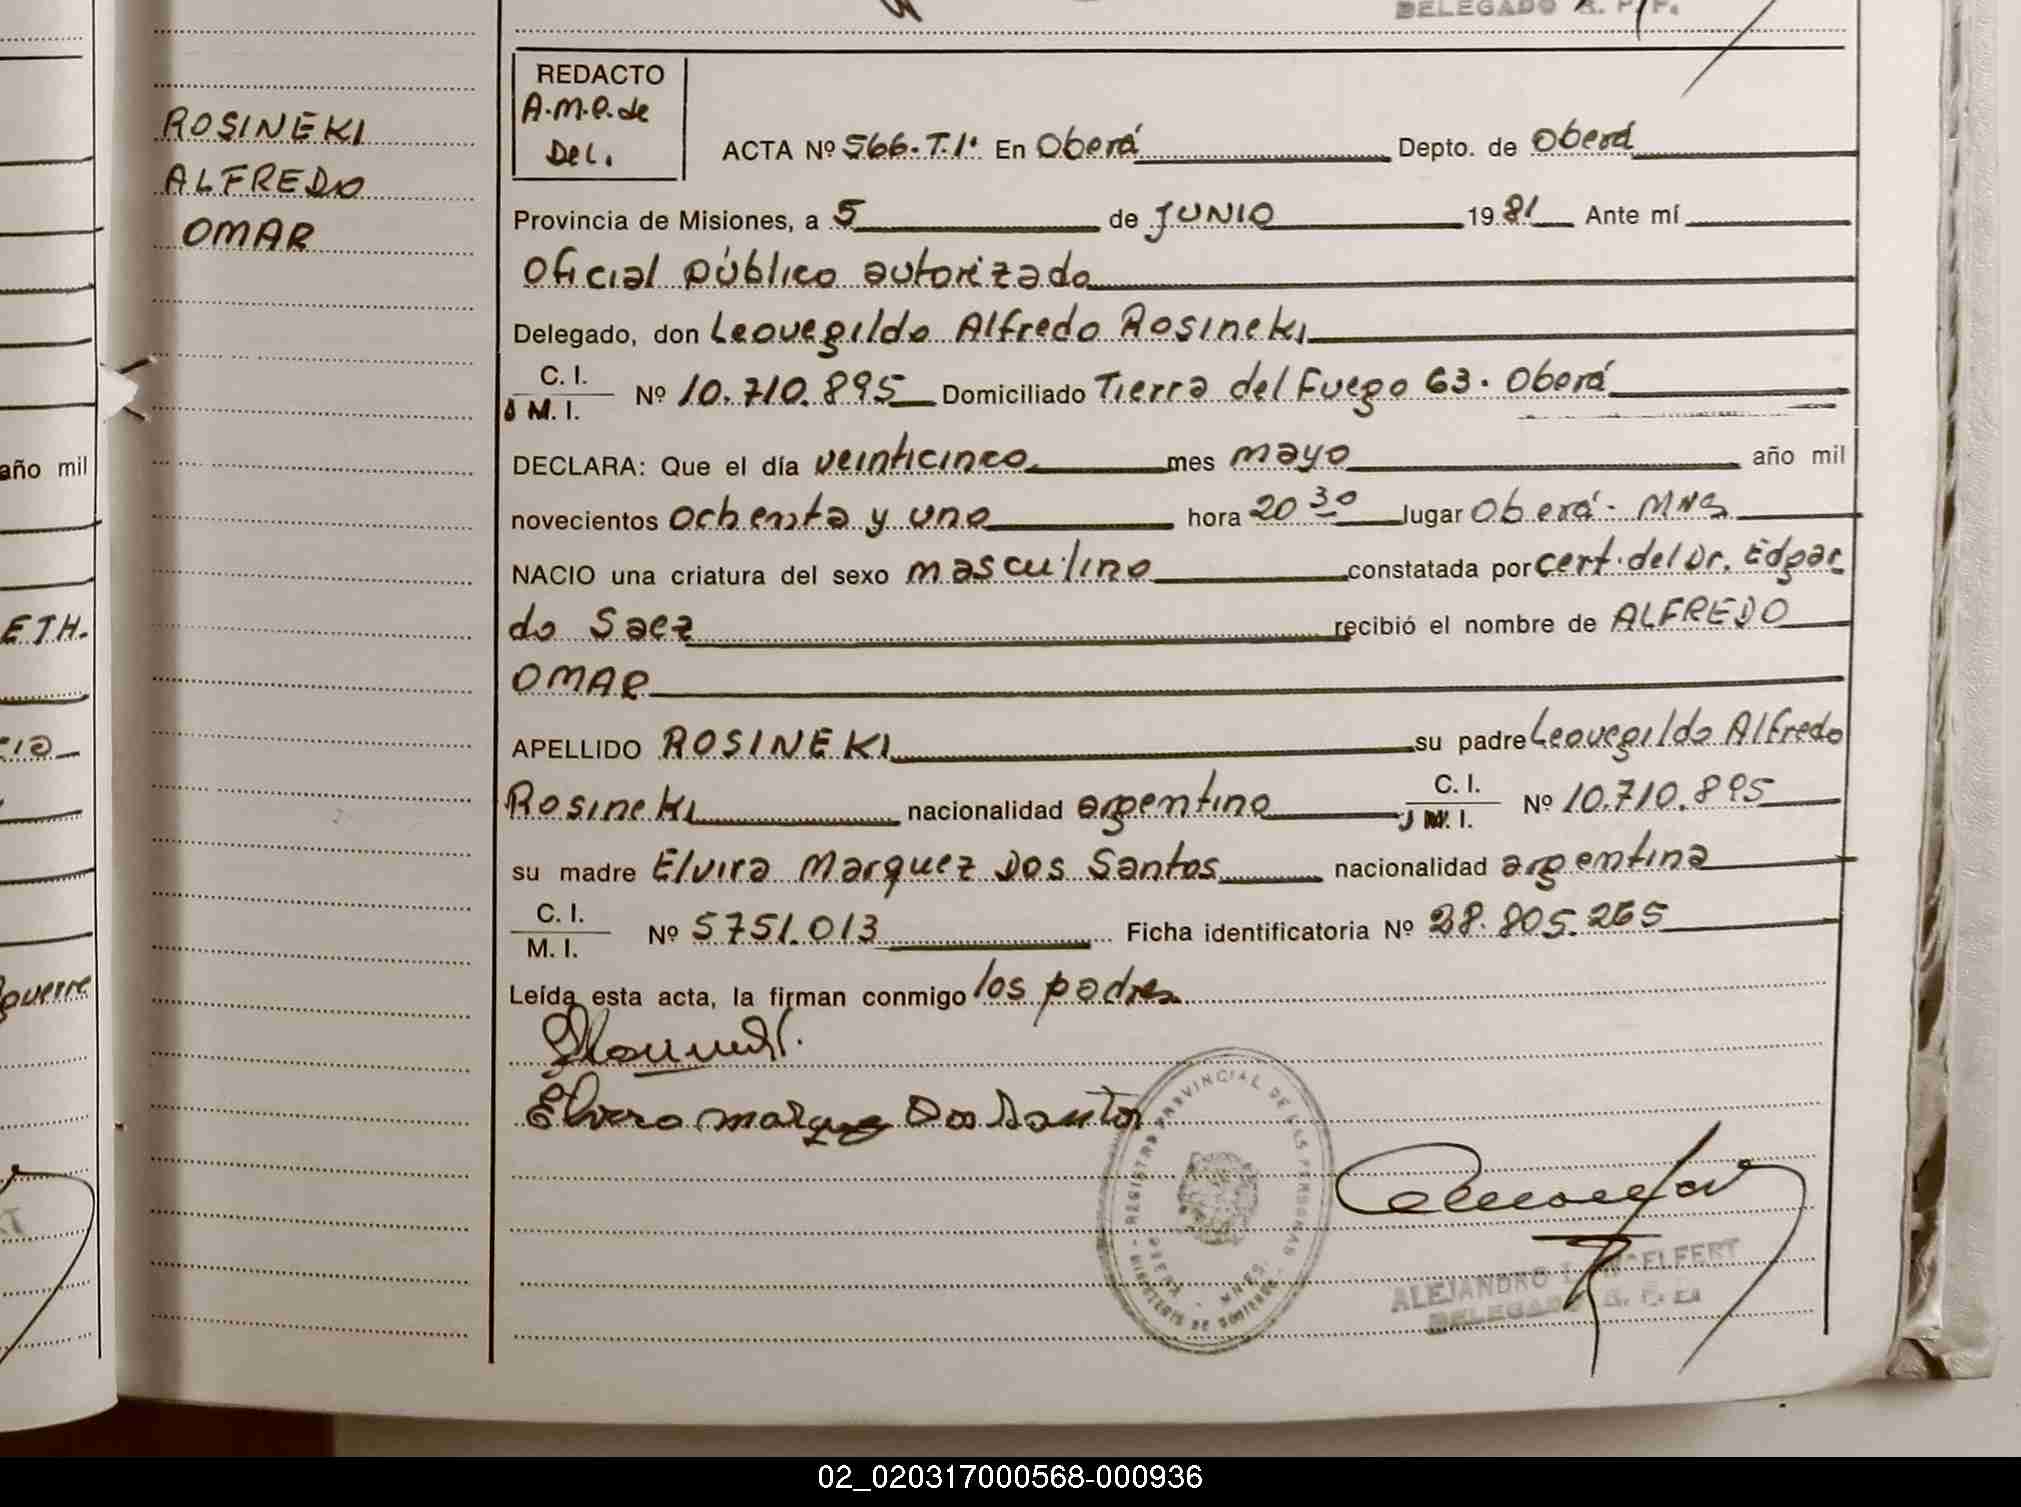 DELEGADO R. P. P.
REDACTO
A.M.Q. de
Del.
ROSINEKI
ALFREDO
OMAR
ACTA Nº 566.T.I. En Oberá Depto. de Oberá
Provincia de Misiones, a 5 de JUNIO 1981 Ante mí
Oficial público autorizado
Delegado, don Leovegildo Alfredo Rosineki
C. I.
M. I. Nº 10.710.895 Domiciliado Tierra del Fuego 63. Oberá
DECLARA: Que el día veinticinco mes mayo año mil
novecientos ochenta y uno hora 20 30 lugar Oberá - MNS
NACIO una criatura del sexo masculino constatada por cert. del Dr. Edgar
do Saez recibió el nombre de ALFREDO
OMAR
APELLIDO ROSINEKI su padre Leovegildo Alfredo
Rosineki nacionalidad argentino C. I.
M. I. Nº 10.710.895
su madre Elvira Marquez Dos Santos nacionalidad argentina
C. I.
M. I. Nº 5751.013 Ficha identificatoria Nº 28.805.265
Leída esta acta, la firman conmigo los padres
Elvera marquez Dos Santos
REGISTRO PROVINCIAL DE LAS PERSONAS
OBERA - MNES.
MINISTERIO DE GOBIERNO
ALEJANDRO
DELEGADO R. P. P.
año mil
ETH.
cia
02_020317000568-000936